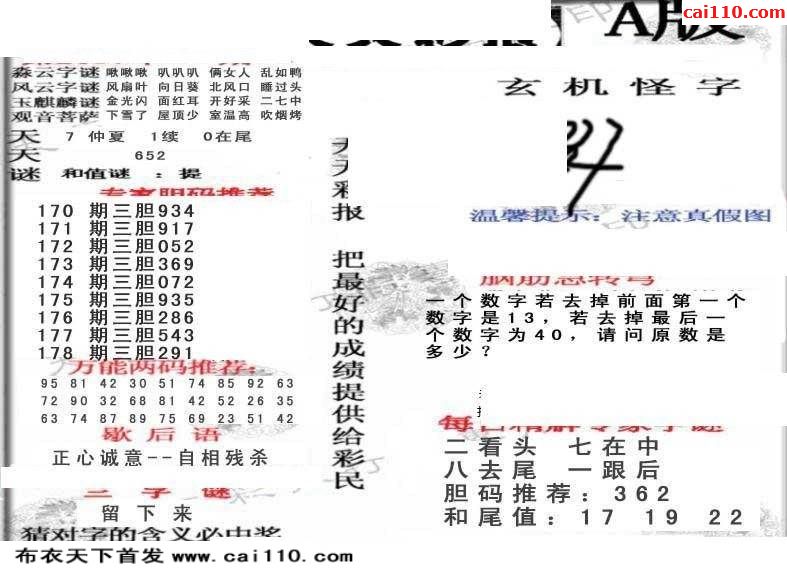 cai110.com
A版
淼云字谜 啾啾啾 叭叭叭 俩女人 乱如鸭
风云字谜 风扇叶 向日葵 北风口 睡过头
玉麒麟谜 金光闪 面红耳 开好采 二七中
观音菩萨 下雪了 屋顶少 室温高 吹烟烤
天 7 仲夏 1续 0在尾
天 652
谜 和值谜 : 提
专家胆码推荐
170 期三胆934
171 期三胆917
172 期三胆052
173 期三胆369
174 期三胆072
175 期三胆935
176 期三胆286
177 期三胆543
178 期三胆291
万能两码推荐:
95 81 42 30 51 74 85 92 63
72 90 32 68 81 42 52 26 35
63 74 87 89 75 69 23 51 42
歇后语
正心诚意--自相残杀
三字谜
留下来
猜对字的含义必中奖
天天彩报 把最好的成绩提供给彩民
玄机怪字
温馨提示: 注意真假图
脑筋急转弯
一个数字若去掉前面第一个
数字是13,若去掉最后一
个数字为40,请问原数是
多少?
每日精解专家字谜
二看头 七在中
八去尾 一跟后
胆码推荐:362
和尾值:17 19 22
布衣天下首发 www.cai110.com